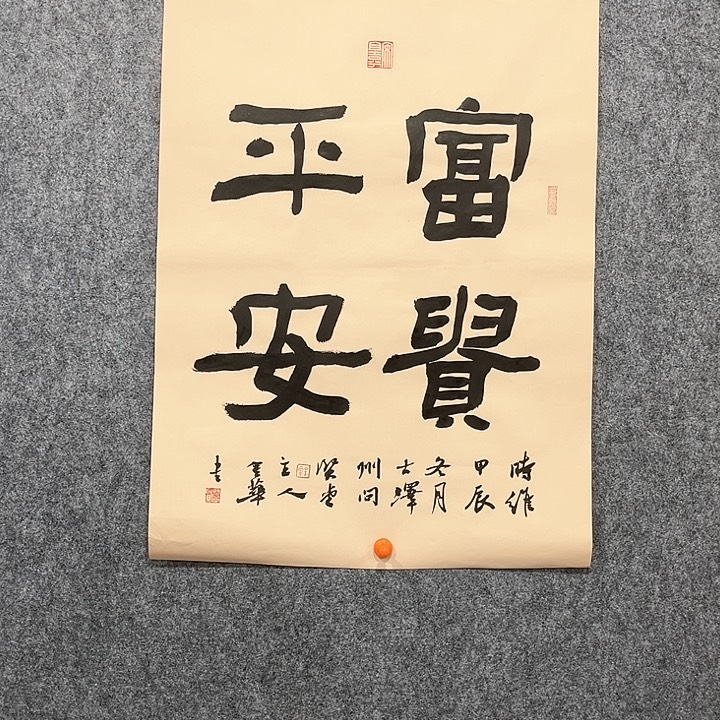 富貴
平安
時維
甲辰
冬月
古驛
州问
賢堂
主人
金華
書